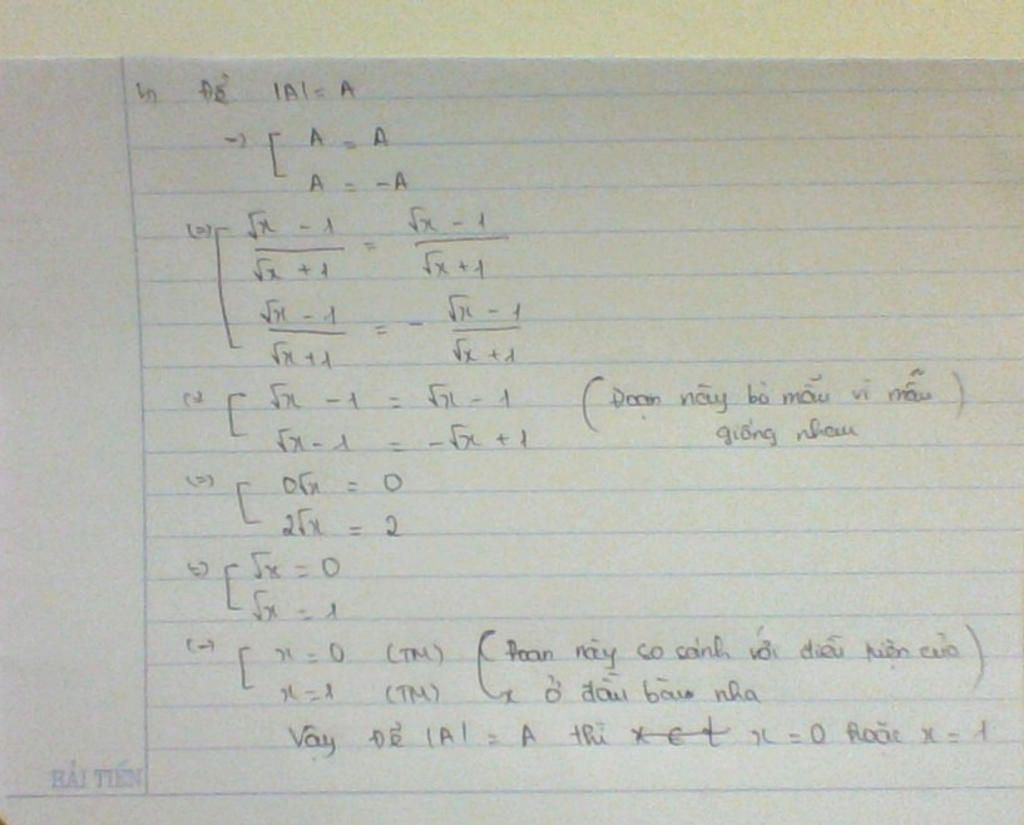 b) Để |A| = A
=> [ A = A
A = -A
(=) [ √x - 1 / √x + 1 = √x - 1 / √x + 1
√x - 1 / √x + 1 = - √x - 1 / √x + 1
(=) [ √x - 1 = √x - 1 (Đoạn này bỏ mẫu vì mẫu)
√x - 1 = -√x + 1 giống nhau
(=) [ 0√x = 0
2√x = 2
(=) [ √x = 0
√x = 1
(=) [ x = 0 (TM) (Đoạn này so sánh với điều kiện của)
x = 1 (TM) x ở đầu bài nha
Vậy Để |A| = A thì x = 0 hoặc x = 1
HẢI TIẾN